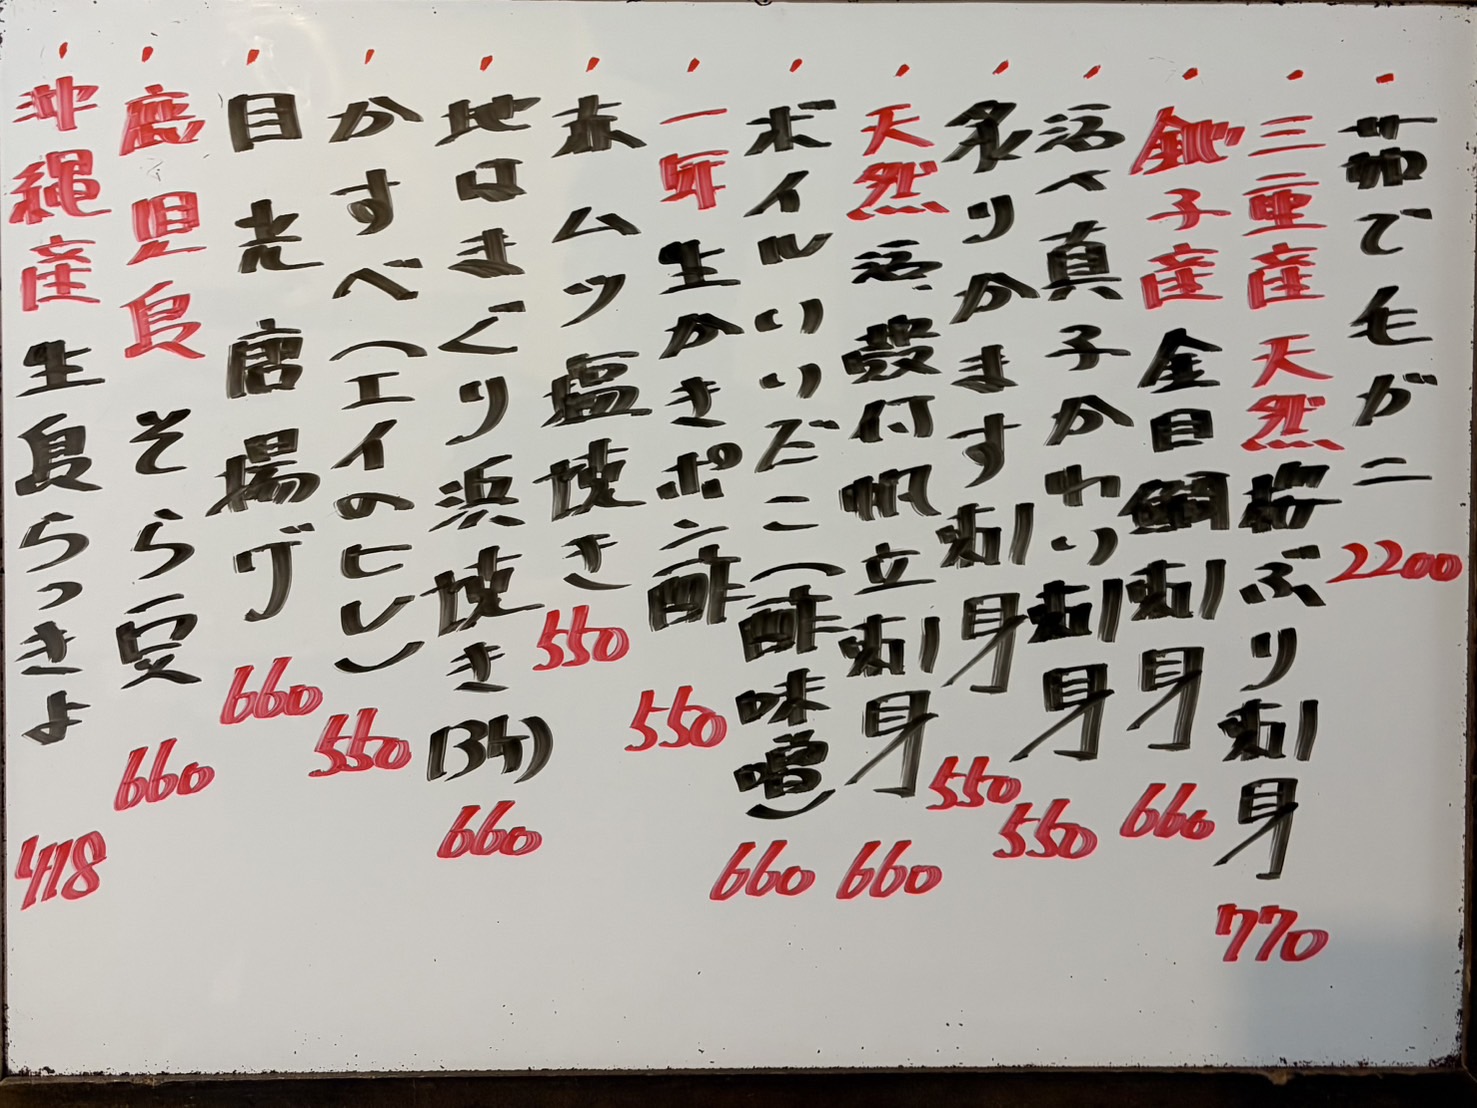 茹で毛がニ 2200
三重産 天然 桜ぶり刺身 770
銚子産 金目鯛刺身 660
活〆真子かれい刺身 550
炙りかます刺身 550
天然 活殻付帆立刺身 660
ボイルいいだこ(酢味噌) 660
一年生かきポン酢 550
赤ムツ塩焼き 550
地はまぐり浜焼き(3ヶ) 660
かすべ(エイのヒレ) 550
目光唐揚げ 660
鹿児島 そら豆 660
沖縄産 生島らっきょ 418